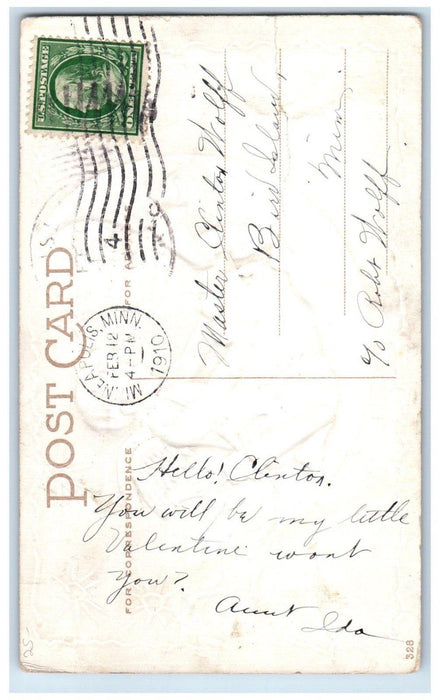 U.S. POSTAGE
ONE CENT
4
MINNEAPOLIS, MINN.
FEB 12
4-PM
1910
POST CARD
FOR ADDRESS
FOR CORRESPONDENCE
Master Clinton Wolff
Bird Island,
Minn.
c/o Robt Wolff.
Hello! Clinton.
You will be my little
Valentine wont
you?
Aunt Ida
328
25